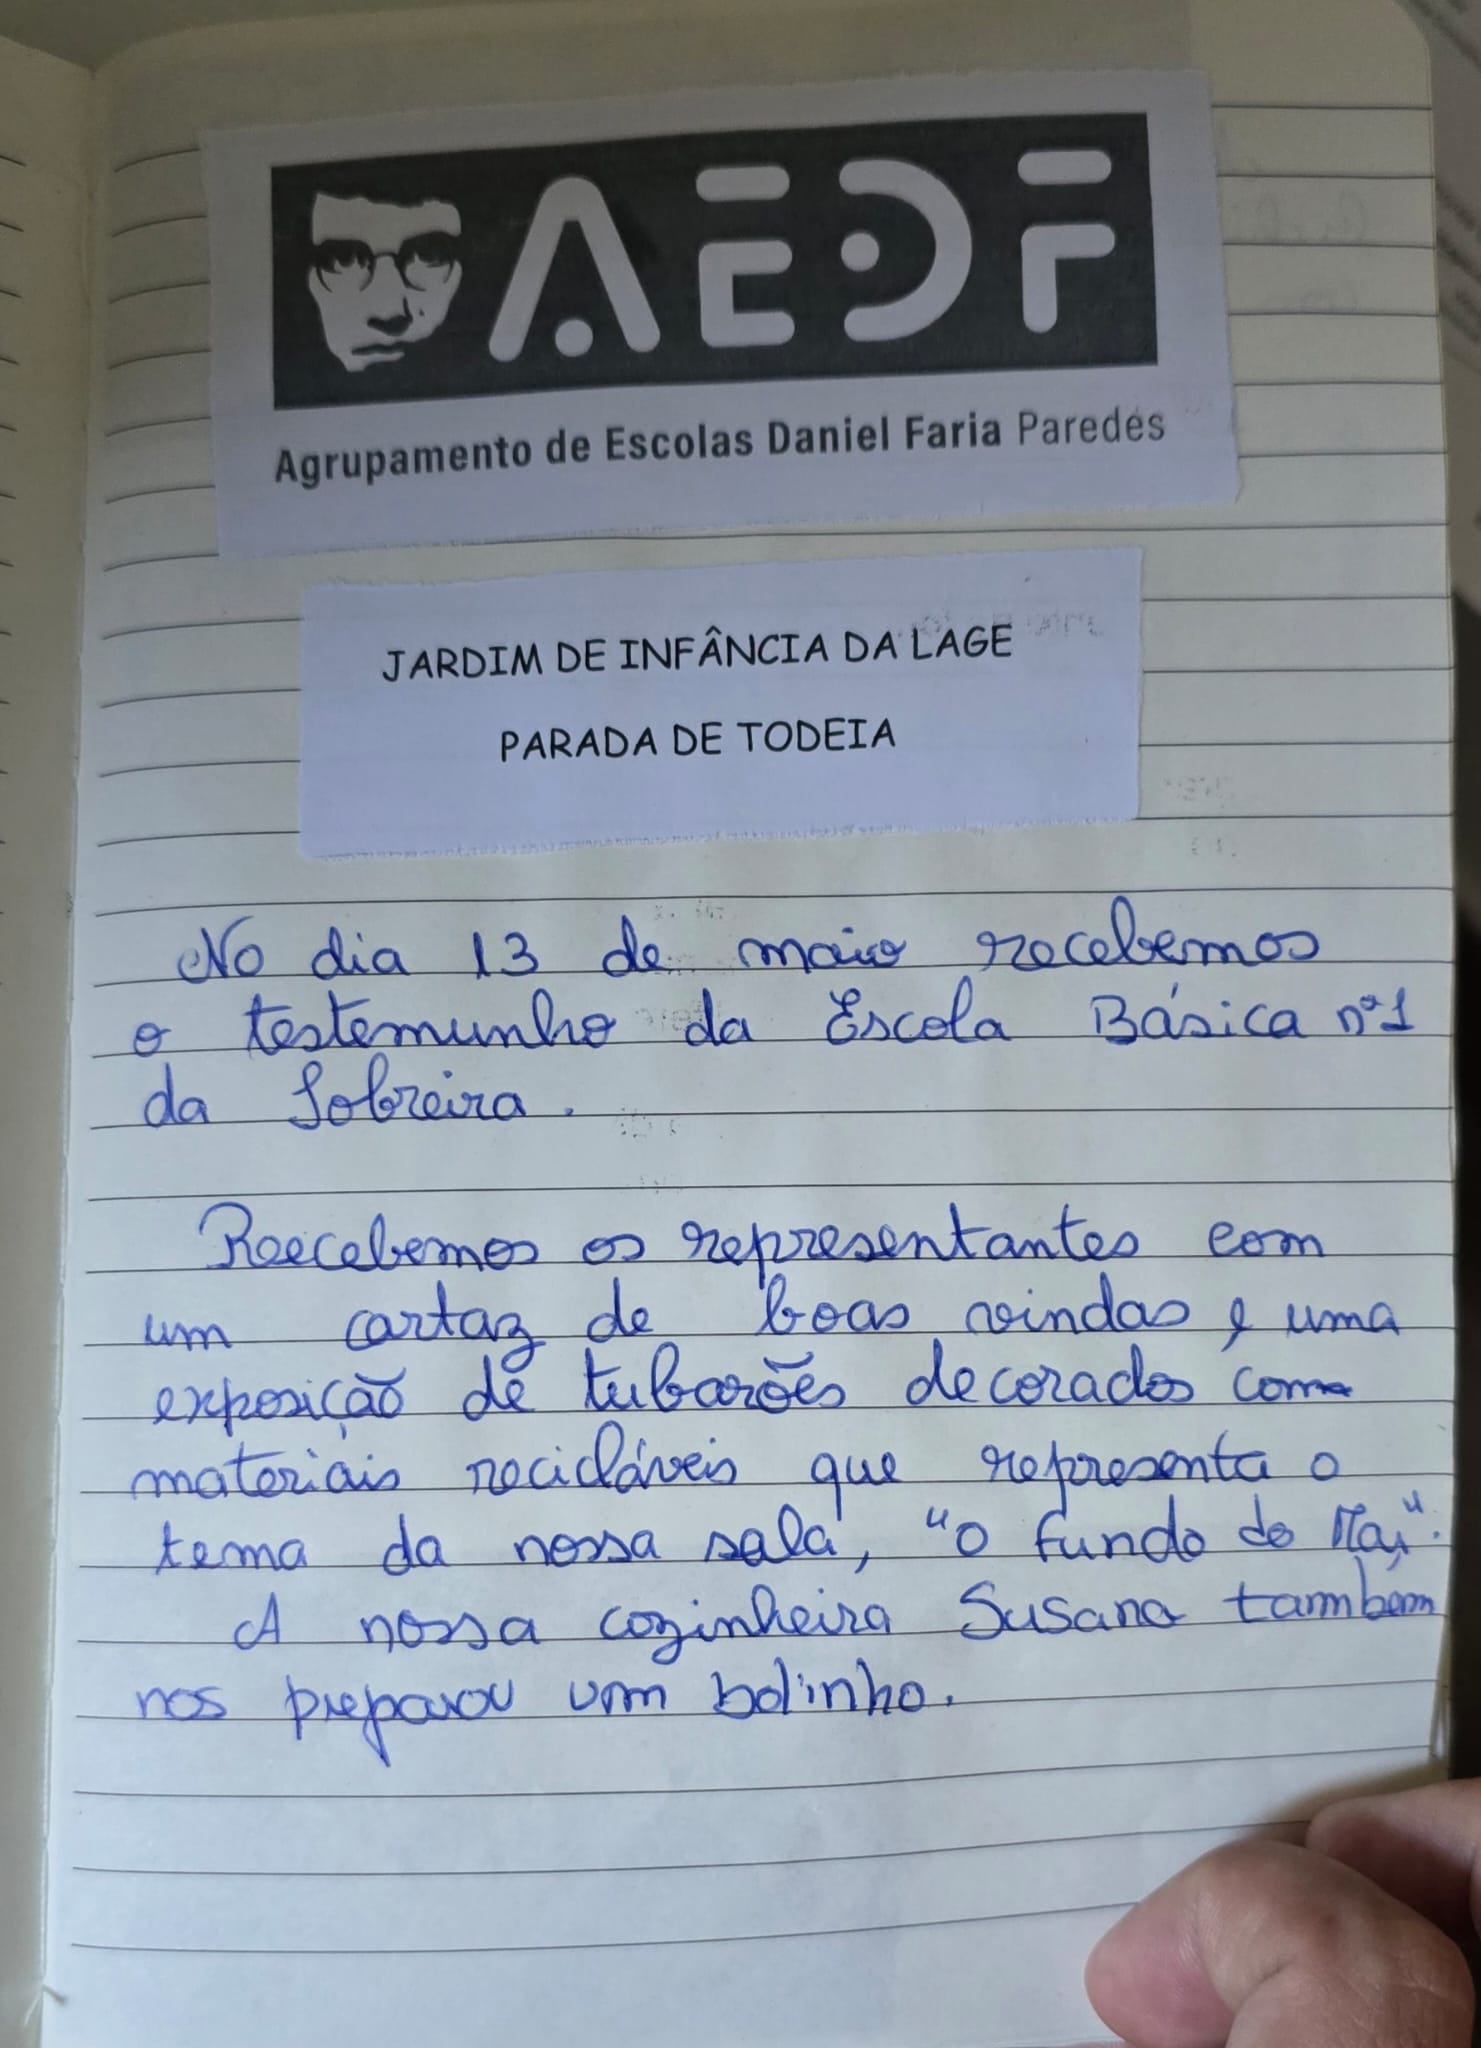 AEDF
Agrupamento de Escolas Daniel Faria Paredes
JARDIM DE INFÂNCIA DA LAGE
PARADA DE TODEIA
No dia 13 de maio recebemos
o testemunho da Escola Básica nº1
da Sobreira.
Recebemos os representantes com
um cartaz de boas vindas e uma
exposição de tubarões decorados com
materiais recicláveis que representa o
tema da nossa sala, "O fundo do Mar".
A nossa cozinheira Susana também
nos preparou um bolinho.